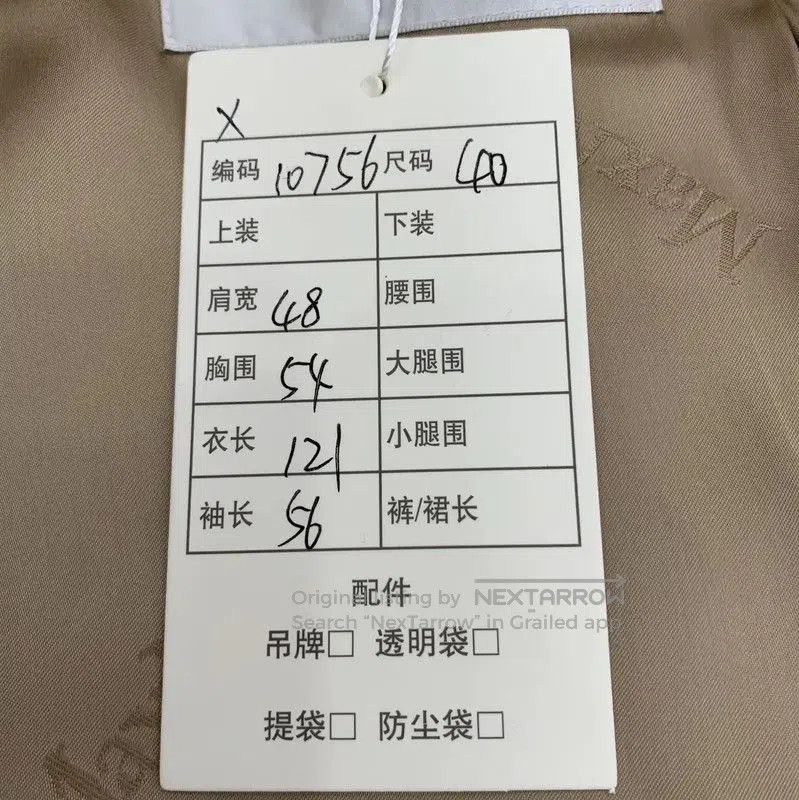 X
编码 10756 尺码 40
上装 下装
肩宽 48 腰围
胸围 54 大腿围
衣长 121 小腿围
袖长 56 裤/裙长
配件
Original listing by NEXTARROW
Search “NexTarrow” in Grailed app
吊牌□ 透明袋□
提袋□ 防尘袋□